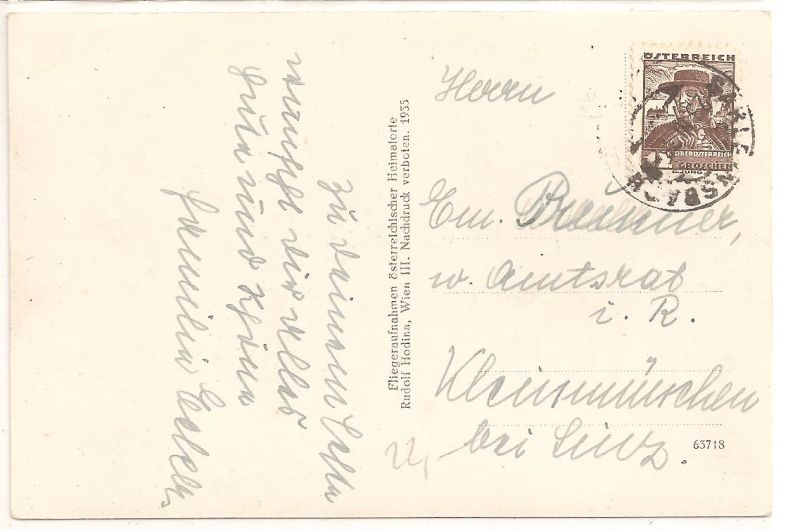 wünscht dir alles
Gute und Schöne
Familie
Fliegeraufnahmen österreichischer Heimatorte
Rudolf Hodina, Wien III. Nachdruck verboten. 1935
ÖSTERREICH
OBERÖSTERREICH
GROSCHEN
Herrn
Em. Breitner,
w. Amtsrat
i. R.
Kleinmünchen
bei Linz.
63718